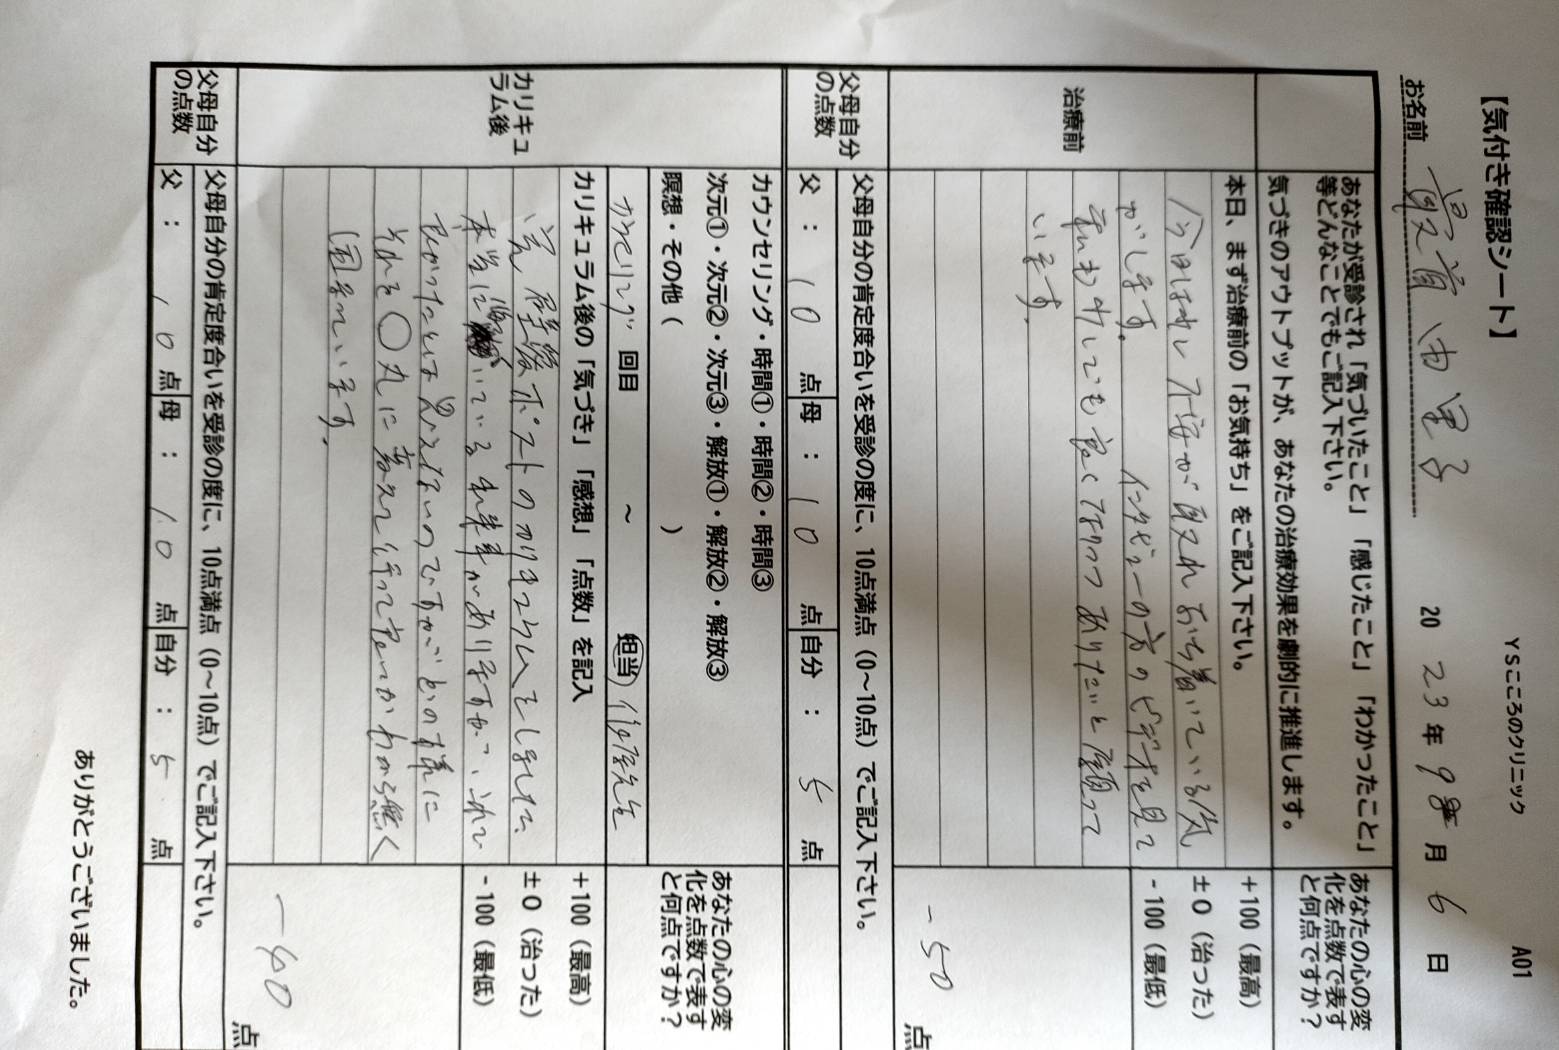 【気付き確認シート】
YSこころのクリニック
A01
お名前 由里子
20 23 年 9 月 6 日
あなたが受診され「気づいたこと」「感じたこと」「わかったこと」
等どんなことでもご記入下さい。
気づきのアウトプットが、あなたの治療効果を劇的に推進します。
あなたの心の変
化を点数で表す
と何点ですか?
治療前
本日、まず治療前の「お気持ち」をご記入下さい。
今日は少し不安が消えれおち着いている気
がします。 インタビューの方のビデオを見て
私も少しでも良くなりつつありたいと願って
います。
+100(最高)
±0(治った)
-100(最低)
-50
点
父母自分
の点数
父母自分の肯定度合いを受診の度に、10点満点(0~10点)でご記入下さい。
父 : 10 点 母 : 10 点 自分 : 5 点
カリキュ
ラム後
カウンセリング・時間①・時間②・時間③
次元①・次元②・次元③・解放①・解放②・解放③
瞑想・その他( )
あなたの心の変
化を点数で表す
と何点ですか?
カウセリング 回目 ~ 担当 先生
カリキュラム後の「気づき」「感想」「点数」を記入
ポストのカリキュラムをしました、
本当に いている出来事がありますが、それで
よかったとは思えないのですがどの様に
それを〇丸に 考えて行って良いかわから無く
困まています。
+100(最高)
±0(治った)
-100(最低)
-40
点
父母自分
の点数
父母自分の肯定度合いを受診の度に、10点満点(0~10点)でご記入下さい。
父 : 10 点 母 : 10 点 自分 : 5 点
ありがとうございました。